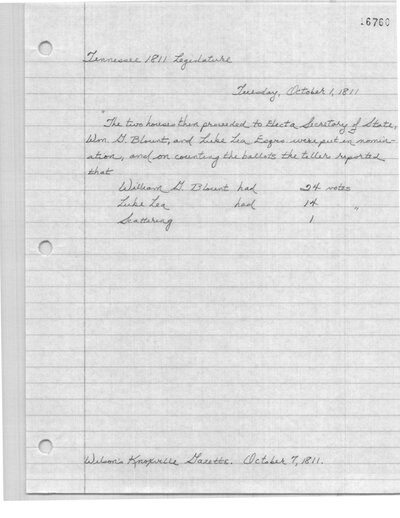 16760
Tennessee 1811 Legislature
Tuesday, October 1, 1811
"The two houses then proceeded to Elect a Secretary of State,
Wm. G. Blount, and Luke Lea Esqrs were put in nomin-
ation, and on counting the ballots the teller reported
that
William G. Blount had 24 votes
Luke Lea had 14 "
Scattering 1
Wilson's Knoxville Gazette. October 7, 1811.